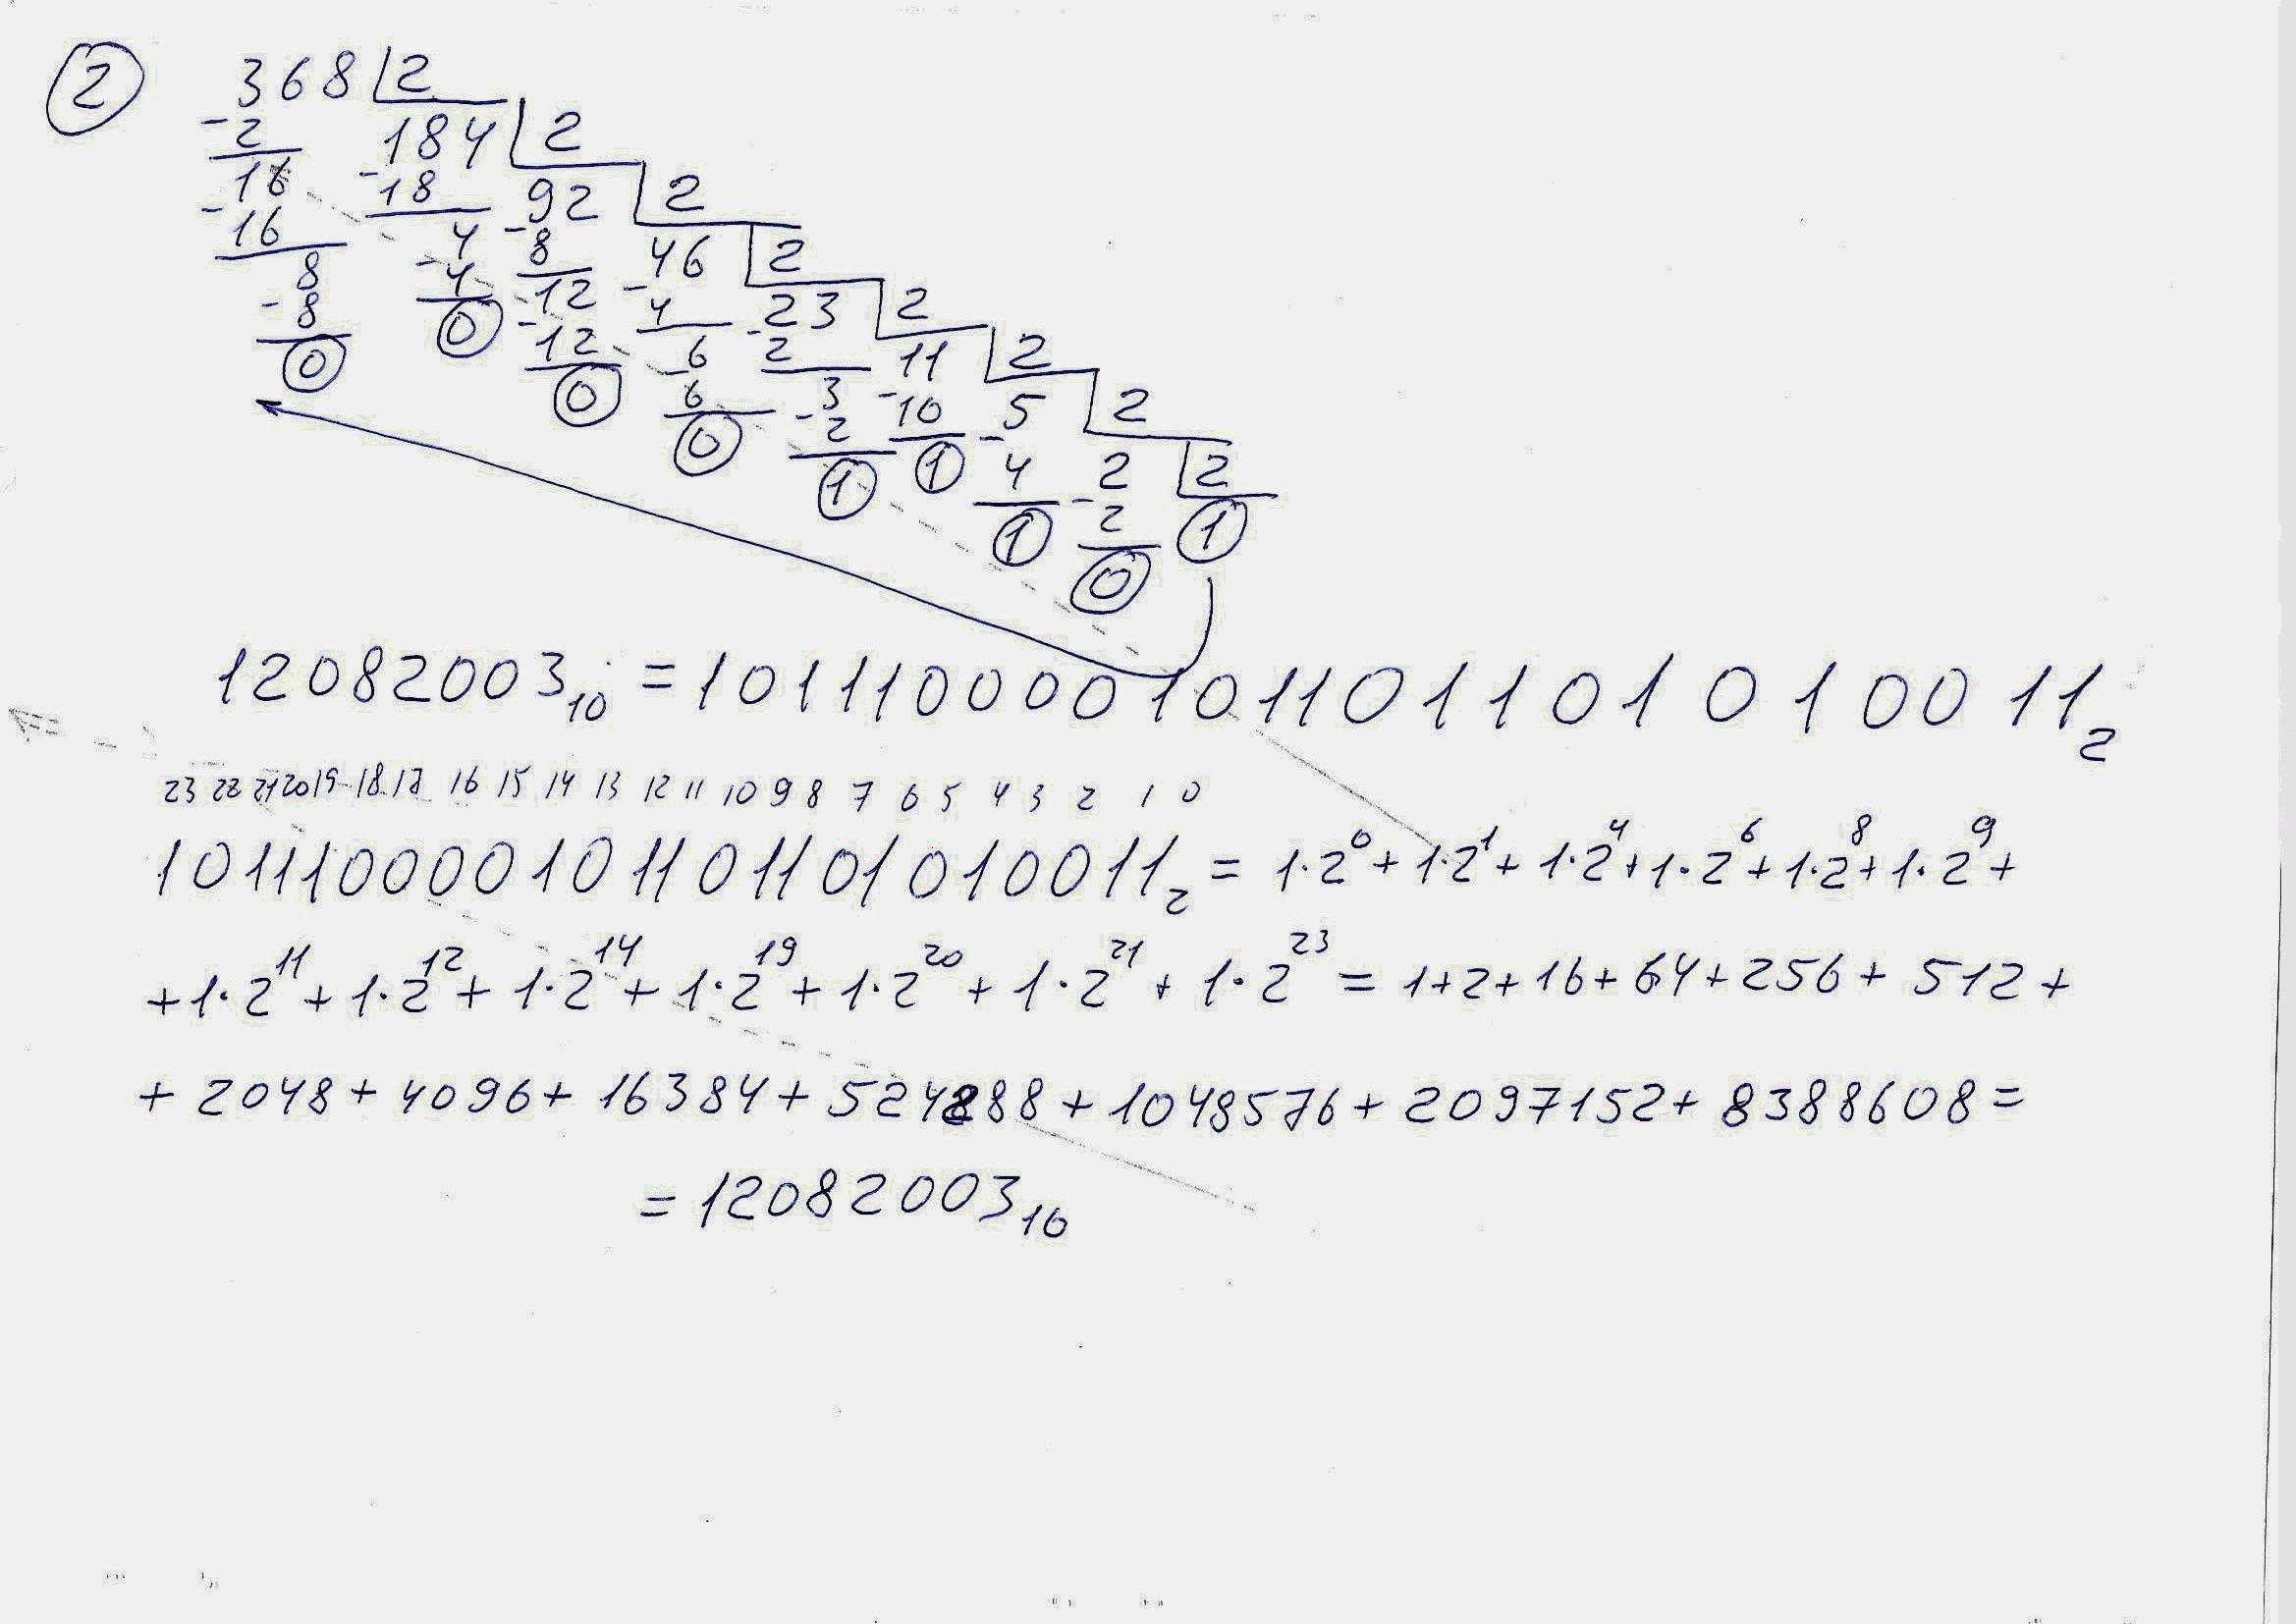 2
368 | 2
-2 184 | 2
16 -18 92 | 2
-16 4 -8 46 | 2
8 -4 12 -4 23 | 2
-8 0 -12 6 -2 11 | 2
0 0 -6 3 -10 5 | 2
0 -2 1 -4 2 | 2
1 1 -2 1
0
12082003₁₀ = 101110000101101101010011₂
23 22 21 20 19 18 17 16 15 14 13 12 11 10 9 8 7 6 5 4 3 2 1 0
101110000101101101010011₂ = 1·2⁰ + 1·2¹ + 1·2⁴ + 1·2⁶ + 1·2⁸ + 1·2⁹ +
+ 1·2¹¹ + 1·2¹² + 1·2¹⁴ + 1·2¹⁹ + 1·2²⁰ + 1·2²¹ + 1·2²³ = 1+2+16+64+256+512+
+ 2048 + 4096 + 16384 + 524288 + 1048576 + 2097152 + 8388608 =
= 12082003₁₀